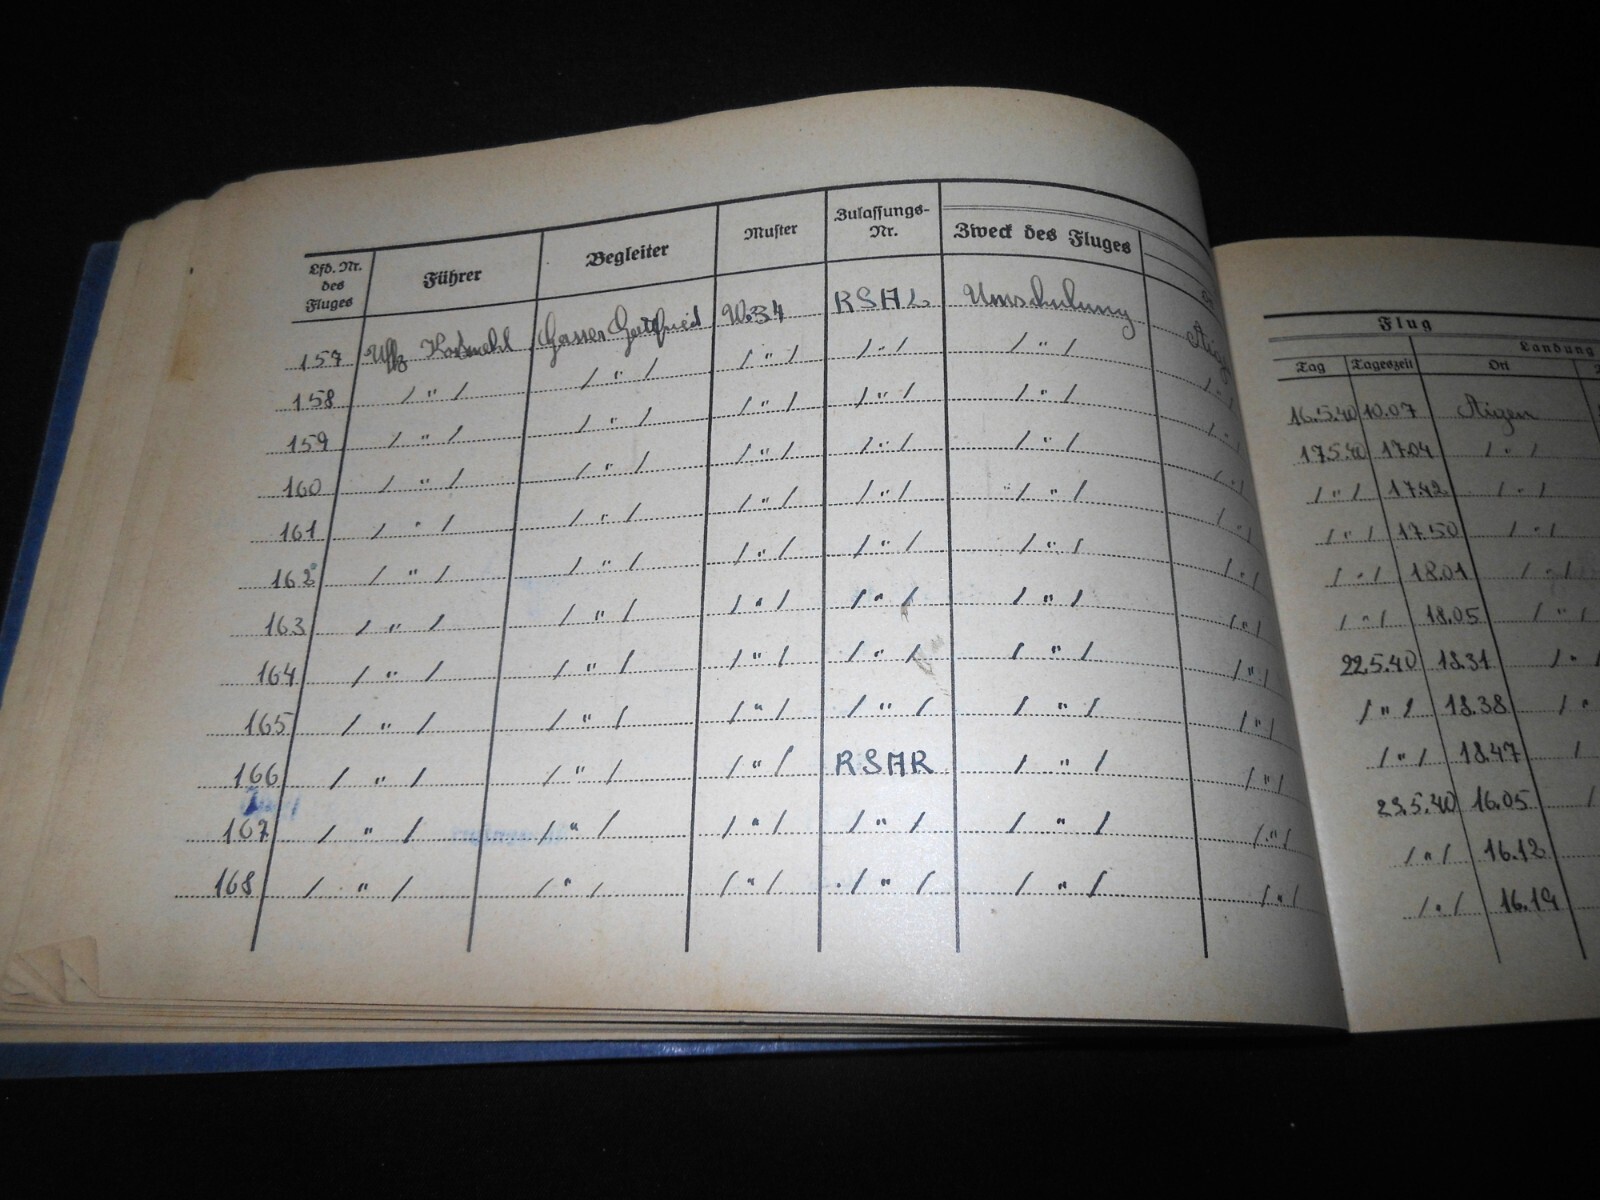 Lfd. Nr. des Fluges Führer Begleiter Muster Zulassungs-Nr. Zweck des Fluges
157 Uffz Gasser Gottfried W.34 RSAL Umschulung Aig
158 / " / / " / / " / / " / / " / / " /
159 / " / / " / / " / / " / / " / / " /
160 / " / / " / / " / / " / / " / / " /
161 / " / / " / / " / / " / / " / / " /
162 / " / / " / / " / / " / / " / / " /
163 / " / / " / / " / / " / / " / / " /
164 / " / / " / / " / / " / / " / / " /
165 / " / / " / / " / / " / / " / / " /
166 / " / / " / / " / RSAR / " / / " /
167 / " / / " / / " / / " / / " / / " /
168 / " / / " / / " / / " / / " / / " /
Flug
Landung
Tag Tageszeit Ort
16.5.40 10.07 Aigen
17.5.40 17.04 / " /
/ " / 17.42 / " /
/ " / 17.50 / " /
/ " / 18.01 / " /
/ " / 18.05 / " /
22.5.40 18.31 / "
/ " / 18.38 / "
/ " / 18.47 /
23.5.40 16.05 /
/ " / 16.12
/ " / 16.19